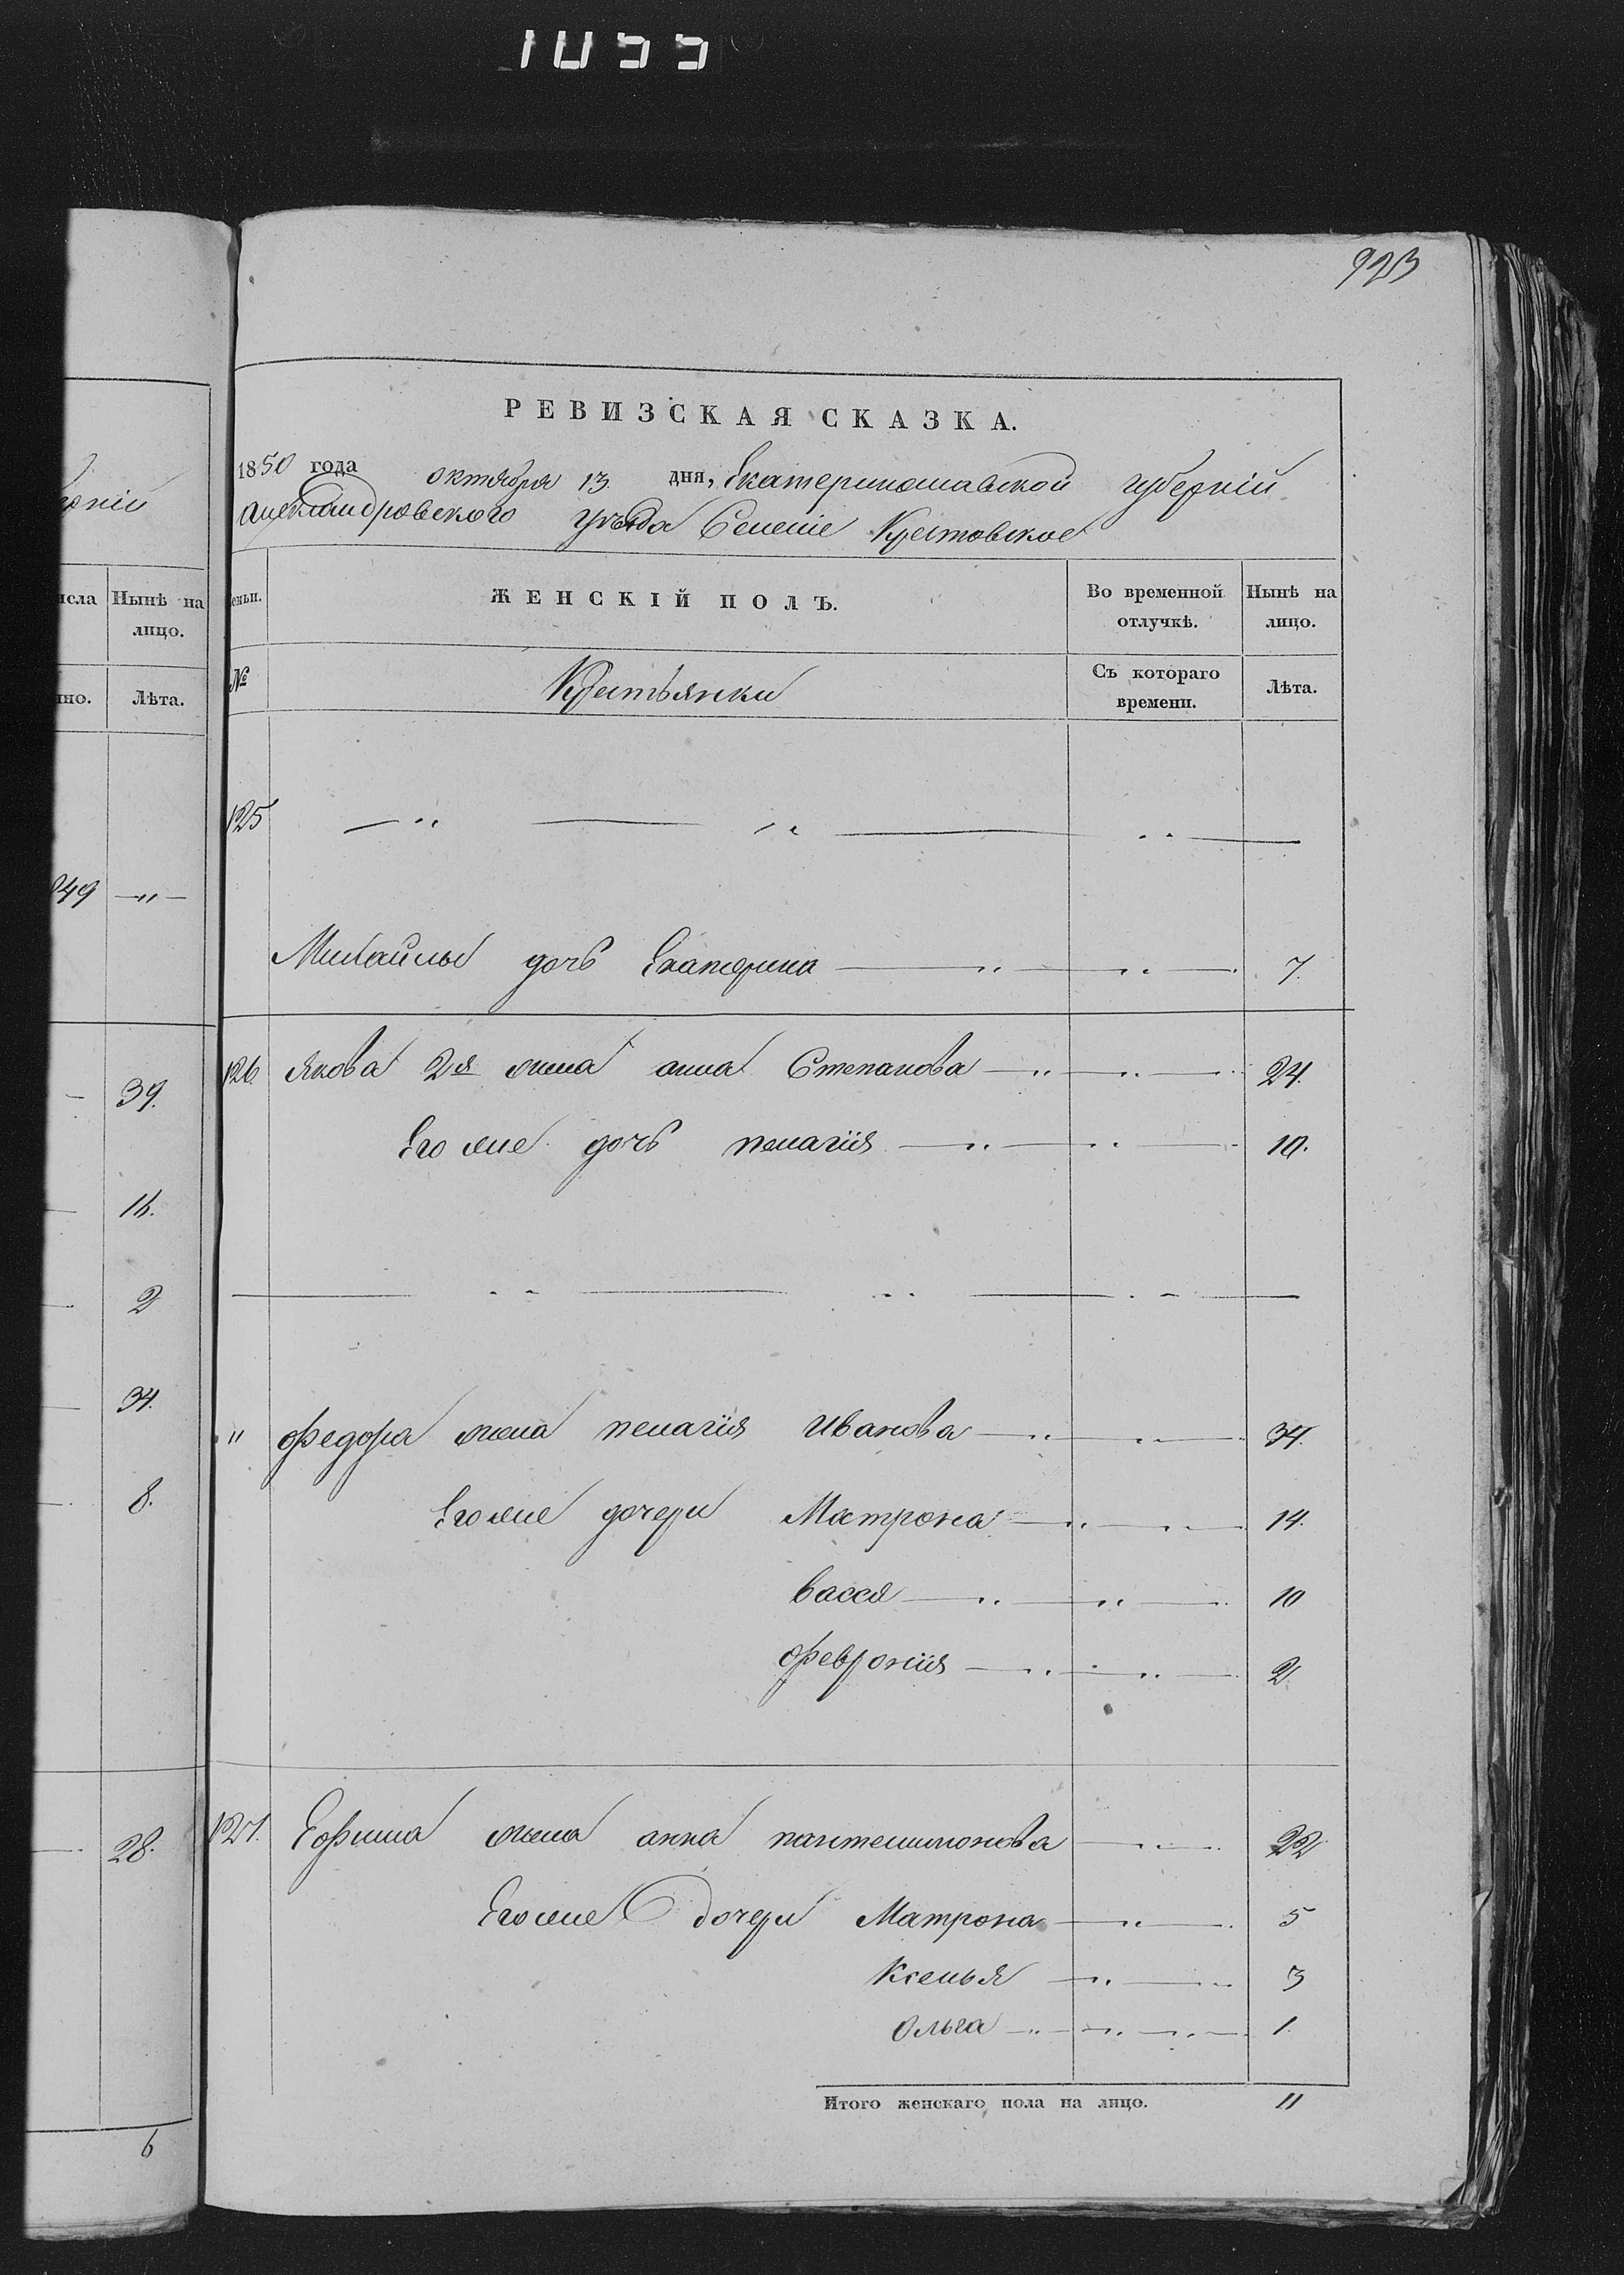 1055
923
РЕВИЗСКАЯ СКАЗКА.
1850 года октября 13 дня, Екатеринославской губерніи
александровского уѣзда Селеніе Крестовское
рніи
исла Нынѣ на лицо.
еньи. ЖЕНСКІЙ ПОЛЪ. Во временной отлучкѣ. Нынѣ на лицо.
нно. Лѣта.
№ Крестьянки Съ котораго времени. Лѣта.
125 — " — " — " —
849 — " —
Михайлы дочь Екатерина — " — " — 7.
39.
126. Якова 2я жена анна Степанова — " — " — 24.
Его же дочь пелагія — " — " — 10.
16.
2
— " — " — " —
34.
" федора жена пелагія Иванова — " — " — 34.
8.
Его же дочери Матрона — " — " — 14.
васса — " — " — 10
феврония — " — " — 2
28.
127. Ефима жена анна пантелимонова — " — 22
Его же дочери Матрона — " — 5
Ксенья — " — 3
Ольга — " — " — " — 1.
Итого женскаго пола на лицо. 11
6